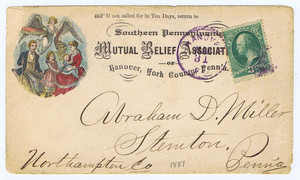 If not called for in Ten Days, return to
Southern Pennsylvania
Mutual Relief Associat
OF
Hanover, York County, Penn'a.
Abraham D. Miller
Stemton,
Northampton Co Penn'a
1881